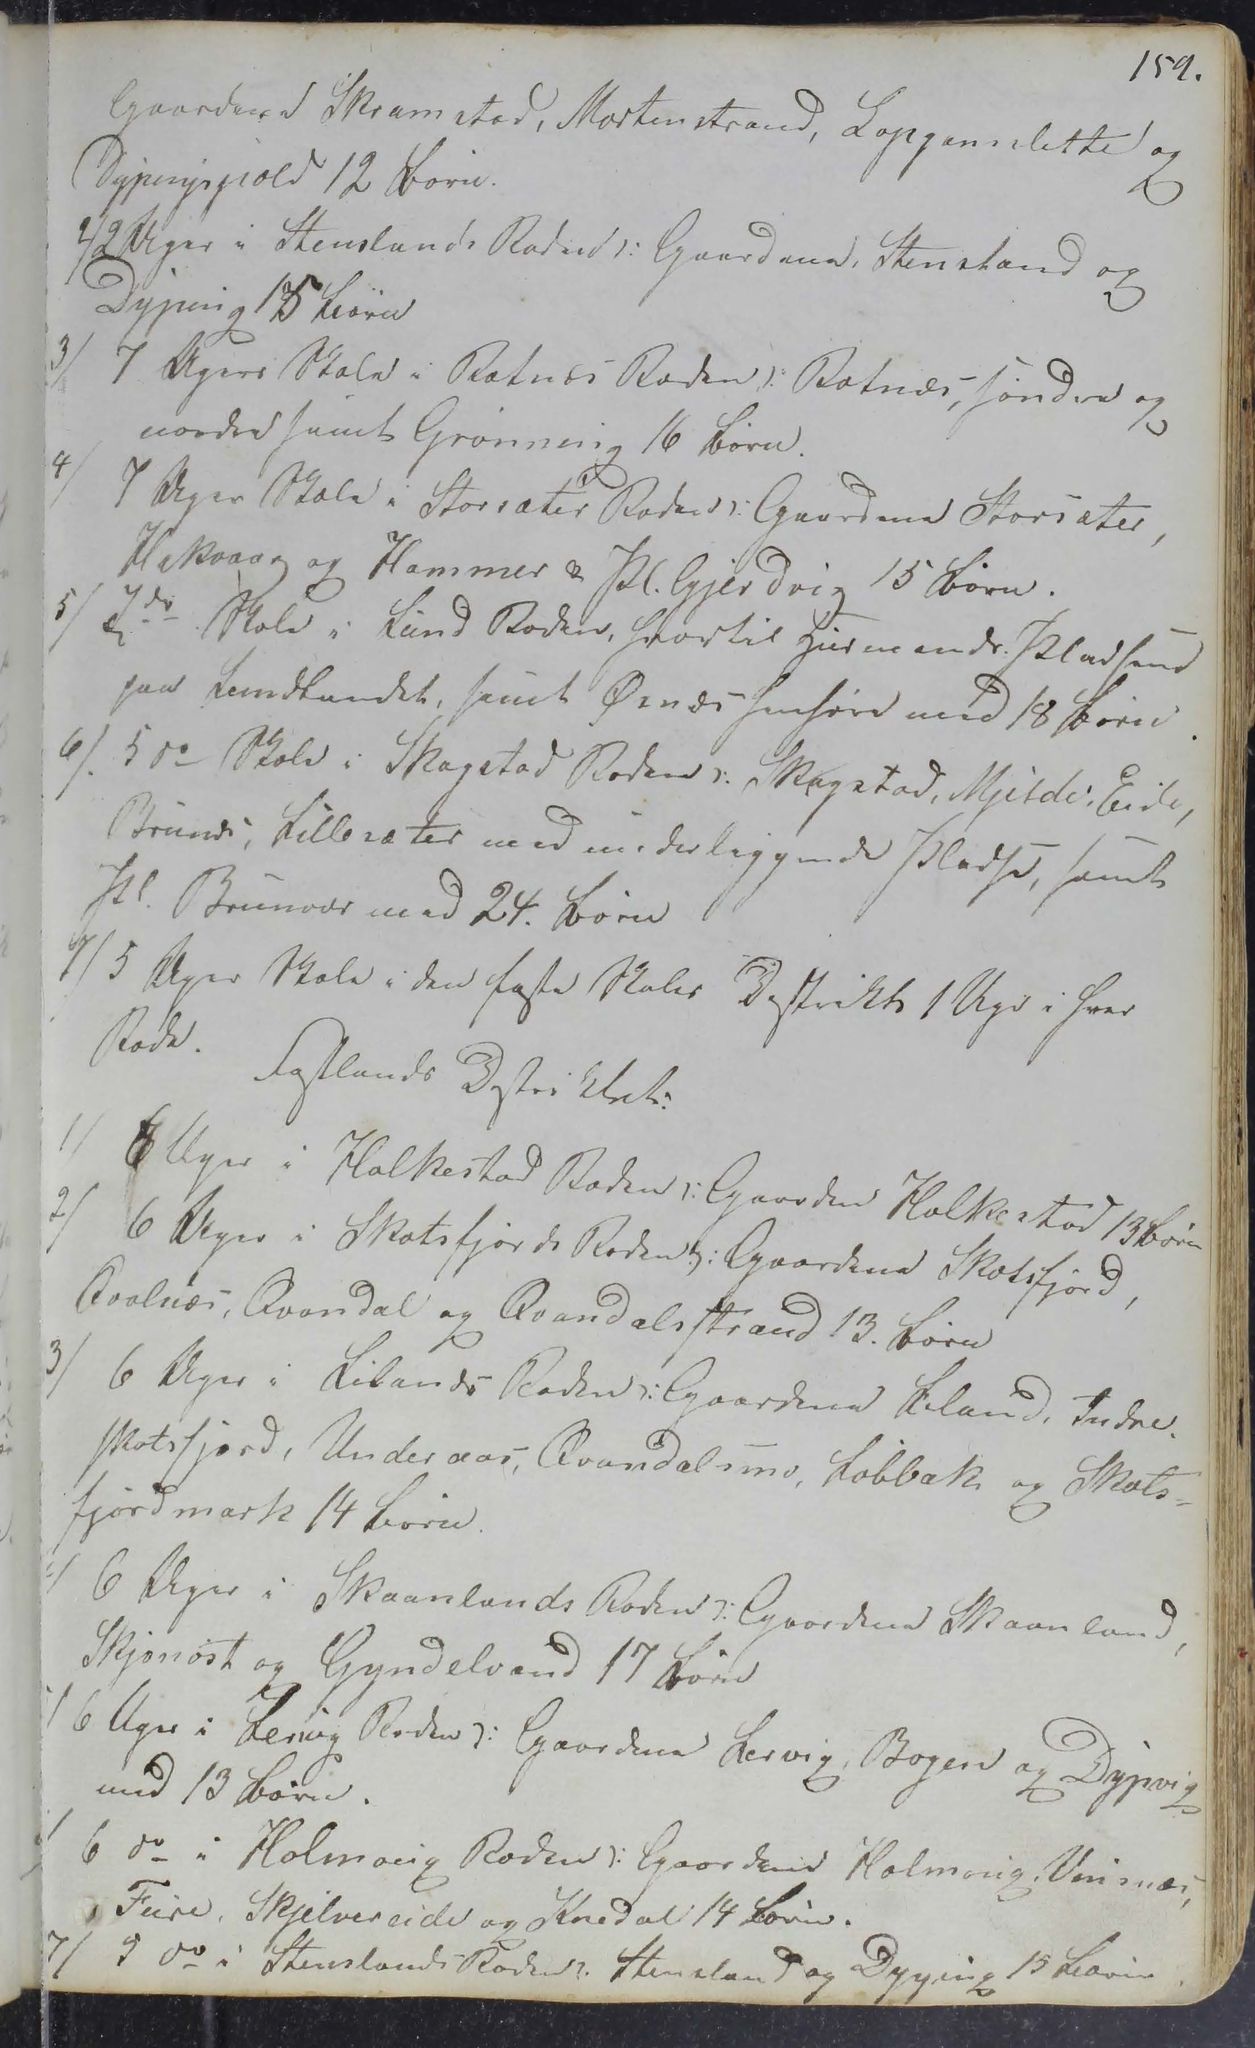 159.
Gaardene Skramstad, Mortenstrand, Lapgamslette og
Dypingsjold 12 Börn.
2/ 2 Uger i Stenslands Roden ɔ: Gaardene, Stensland og
Dyping 15 Börn
3/ 7 Ugers Skole i Rotnæs Roden ɔ: Rotnæs, söndre og
nordre samt Grönning 16 Börn.
4/ 7 Uger Skole i Storsæter Roden ɔ: Gaardene Storsæter,
Hakvaag og Hammer & Pl. Gjerdvig 15 Börn.
5/ 7 do Skole i Lund Roden, hvortil Huusmands Pladsene
paa Lundlandet, samt Ørnæs henhöre med 18 Börn.
6/. 5 do Skole i Skagstad Roden ɔ: Skagstad, Mjelde, Eide,
Brunæs, Lillesæter med underliggende Pladse, samt
Pl. Brunvær med 24. Börn
7/ 5 Uger Skole i den faste Skoles Destrikt 1 Uge i hver
Rode.
Fastlands Destriktet:
1/ 6 Uger i Holkestad Roden ɔ: Gaarden Holkestad 13 Börn
2/ 6 Uger i Skotsfjords Roden ɔ: Gaardene Skotsfjord,
Qvalnæs, Qvandal og Qvandalsstrand 13. Börn
3/ 6 Uger i Lilands Roden ɔ: Gaardene Liland, Indre
skotsfjord, Underaas, Qvandalsmo, Löbbak og Skots-
fjordmark 14 Börn.
6 Uger i Skaanlands Roden ɔ: Gaardene Skaanland,
Skjönöst og Gyndelvand 17 Börn
6 Uger i Lervig Roden ɔ: Gaardene Lervig, Bogen og Dypvig
med 13 Börn.
6 do i Holmvaig Roden ɔ: Gaardene Holmvaig, Vinsnæs,
Fure, Skjelvereide og Knedal 14 Börn.
7/ 5 do i Stenslands Roden ɔ: Stensland og Dyping 15 Börn.